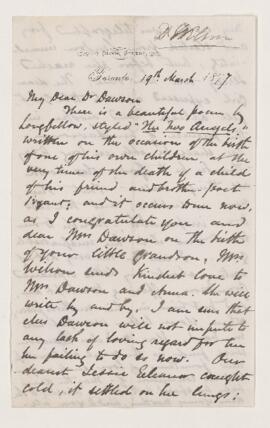 Dr Wilson
Toronto, 19th March 1877
My Dear Dr Dawson
There is a beautiful poem by
Longfellow, styled "The Two Angels,"
written on the occasion of the birth
of one of his own children at the
very time of the death of a child
of his friend and brother poet
and it occurs to me now,
as I congratulate you and
dear Mrs Dawson on the birth
of your little grandson, Mrs
Wilson sends kindest love to
Mrs Dawson and Anna. She will
write by and by. I am sure that
Mrs Dawson will not impute to
any lack of loving regard for her
her failing to do so now. Our
dearest Jessie Eleanor caught
cold, it settled on her lungs;